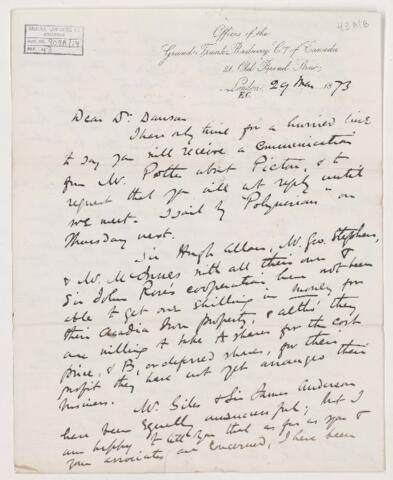 43A/B
Offices of the
Grand Trunk Railway Co. of Canada
21, Old Broad Street,
London, 29 Mar 1873
E.C.
Dear Dr Dawson
I have only time for a hurried line
to say you will receive a communication
from Mr. Potter about Pictou, & to
request that you will not reply until
we meet. I sail by "Polynesian" on
Thursday next.
Sir Hugh Allan, Mr. Geo. Stephen,
& Mr. McInnes with all their own &
Sir John Rose's cooperation have not been
able to get one shilling in money for
their Acadia Iron property, & altho' they
are willing to take A shares for the cost
price, & B, or deferred shares, for their
profit they have not yet arranged their
business.
Mr. Giles & Sir James Anderson
have been equally unsuccessful; but I
am happy to tell you that as far as you &
your associates are concerned, I have been